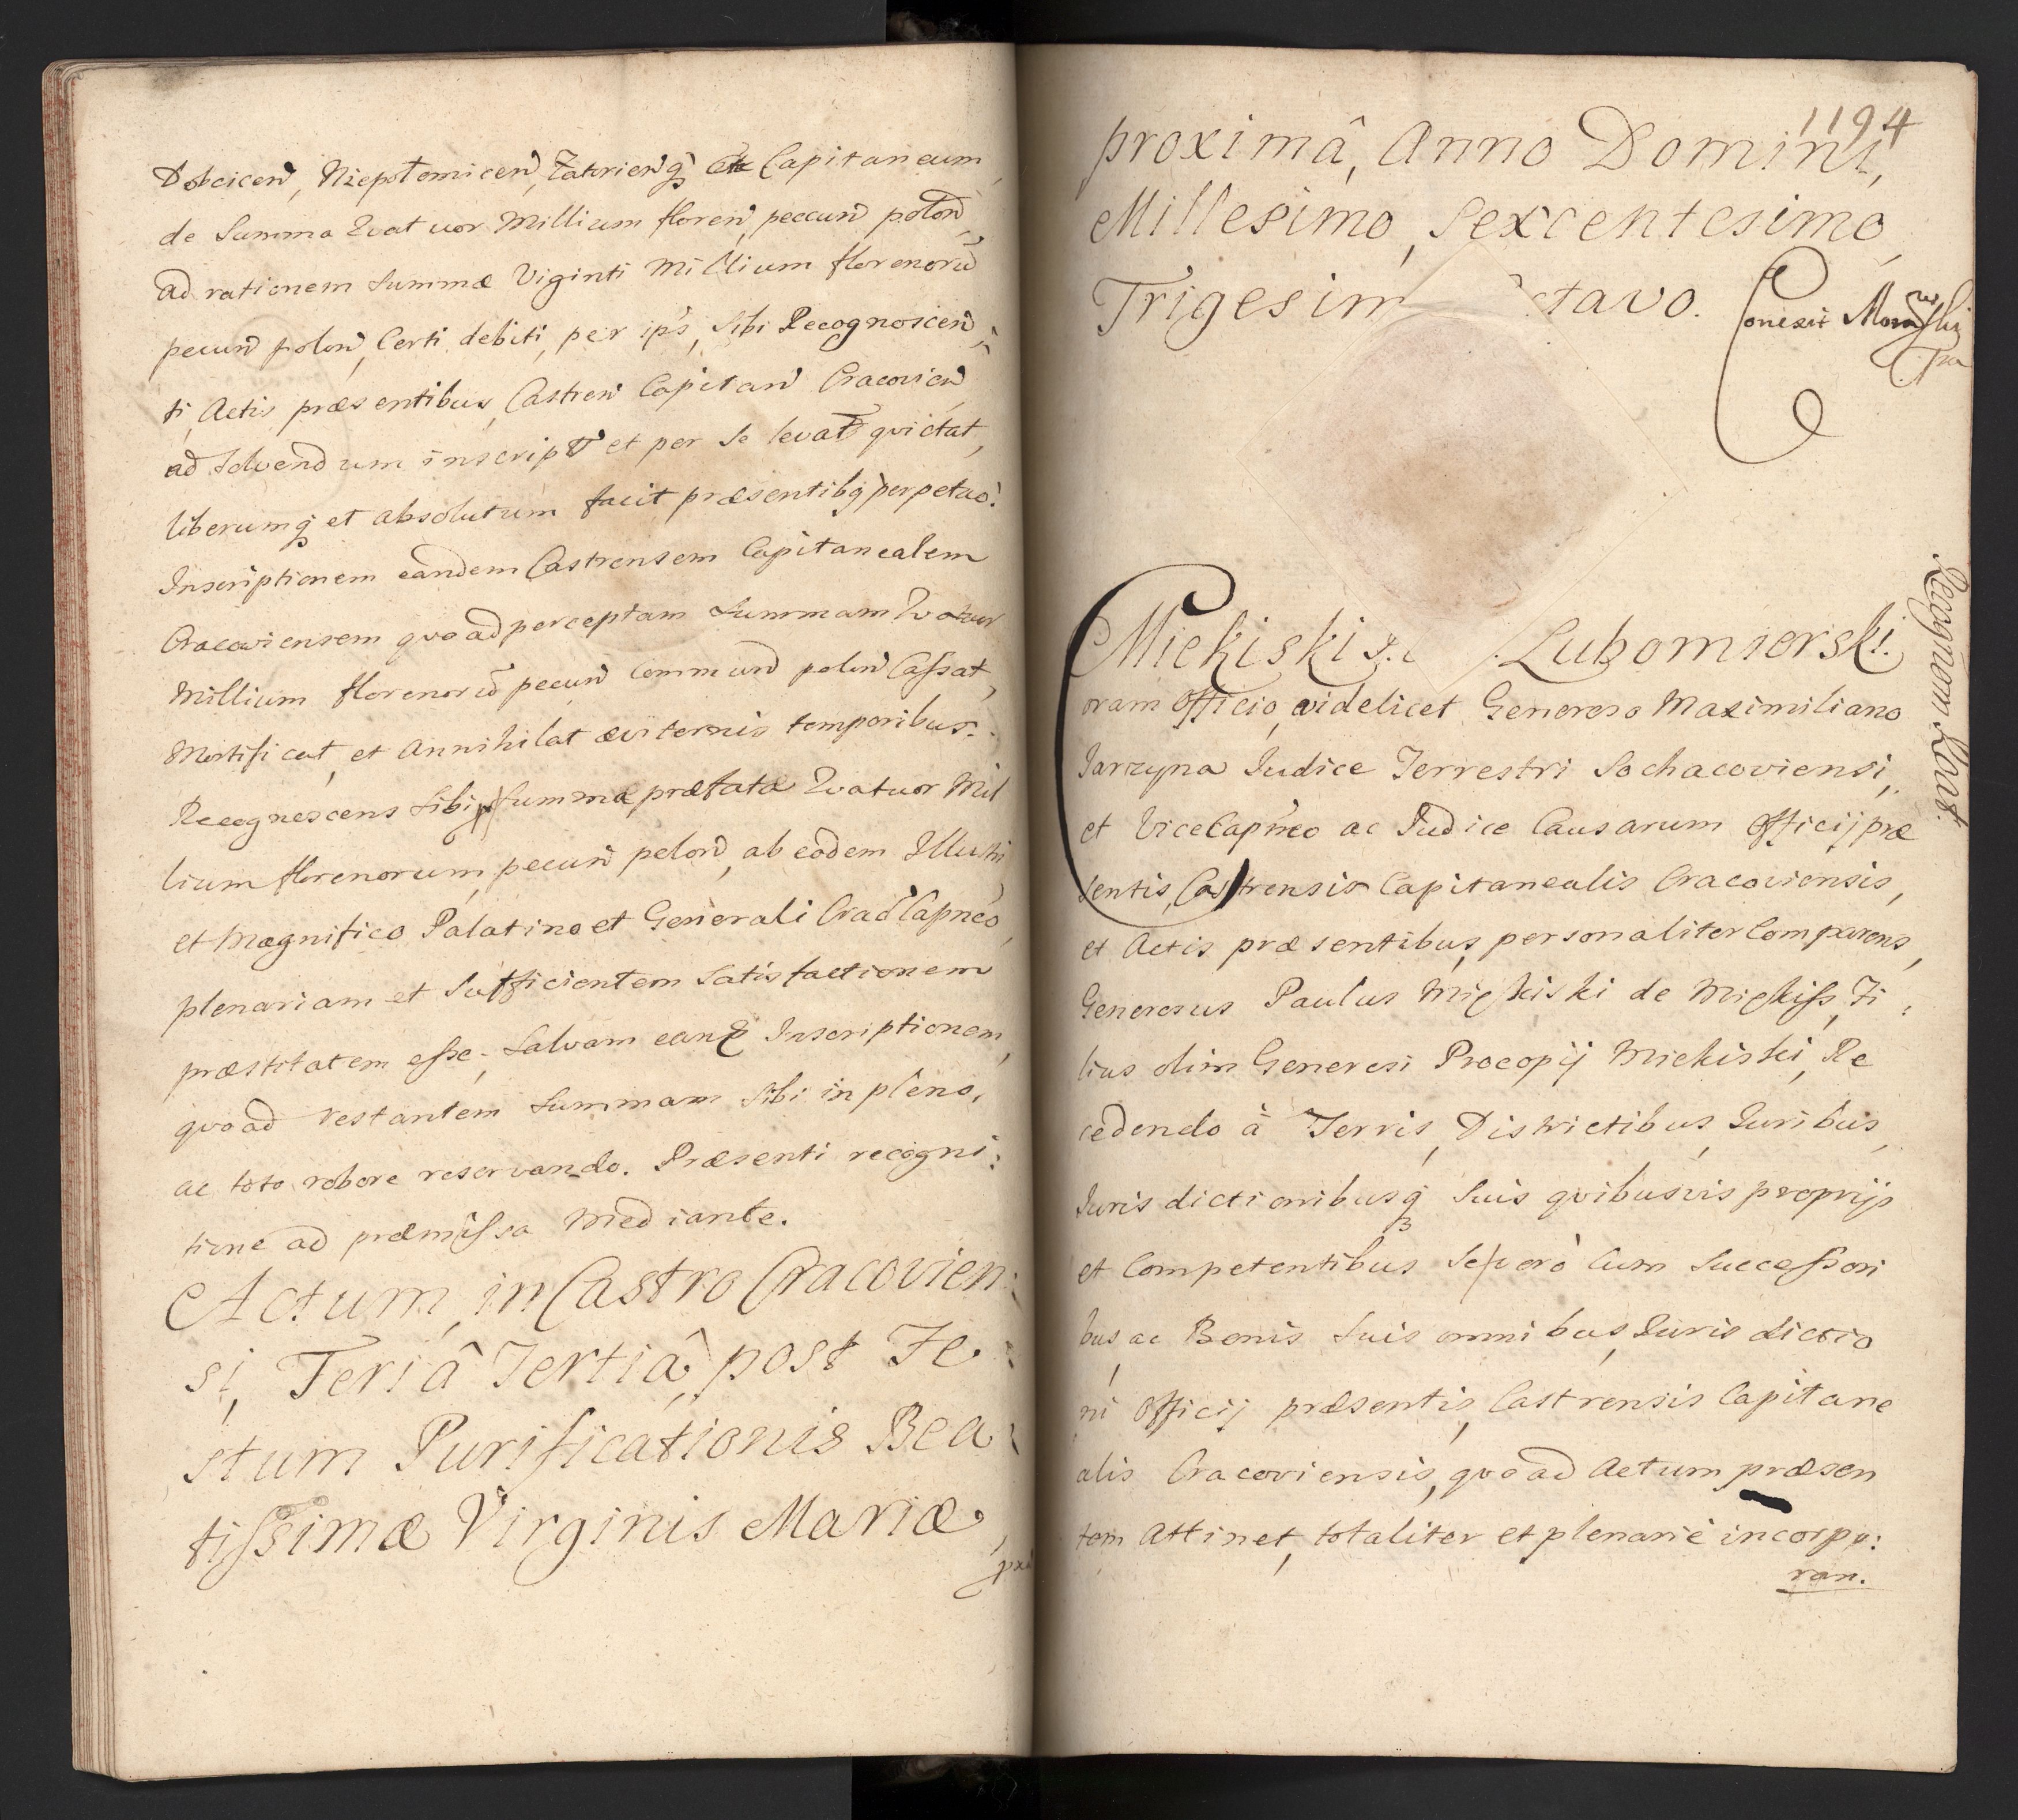 Dobcicen, Niepołomicen, Zatoriensq Capitaneum,
de Summa Quatuor Millium floren, peccun polon,
ad rationem Summæ Viginti Millium florenorũ
pecun polon, Certi debiti, per ips, Sibi Recognoscen:
ti, Actis præsentibus, Castren Capitan Cracovien
ad Solvendum inscript et per Se levat quictat,
liberumq et absolutum facit præsentibq perpetuo.
Inscriptionem eandem Castrensem Capitanealem
Cracoviensem quoad perceptam Summam Quatuor
Millium florenorũ pecun Commun polon Cassat,
Mortificat, et Annihilat æviternis temporibus.
Recognoscens Sibi Summæ præfatæ Quatuor Mil
lium florenorum, pecun polon, ab eodem Illustri
et Magnifico Palatino et Generali Crac Capneo,
plenariam et Sufficientem Satisfactionem
præstitatem esse. Salvam eanq Inscriptionem,
quoad restantem Summam Sibi in pleno,
ac toto robore reservando. Præsenti recogni:
tione ad præmissa Mediante.
Actum, in Castro Cracovien:
si, Feriâ Tertiâ, post Fe:
stum Purificationis Bea:
tissimæ Virginis Mariæ,
1194
proximâ, Anno Domini,
Millesimo, Sexcentesimo,
Trigesim ctavo.
Recognition Roat.
Miekiski Lubomierski.
oram Officio, videlicet Generoso Maximiliano
Jarzyna Judice Terrestri Sochacoviensi,
et ViceCapneo ac Judice Causarum Officij præ
sentis, Castrensis Capitanealis Cracoviensis,
et Actis præsentibus, personaliter Comparens,
Generosus Paulus Miekiski de Miekiss, Fi:
lius olim Generosi Procopij Miekiski, Re
cedendo à Terris, Districtibus, Iuribus,
Iurisdictionibusq Suis quibusvis proprijs
et Competentibus Se vero Cum Successori
bus ac Bonis Suis omnibus, Iurisdictio
ni Officij præsentis, Castrensis Capitane
alis Cracoviensis, quoad Actum præsen
tem Attinet, totaliter et plenariè incorpo:
ran.